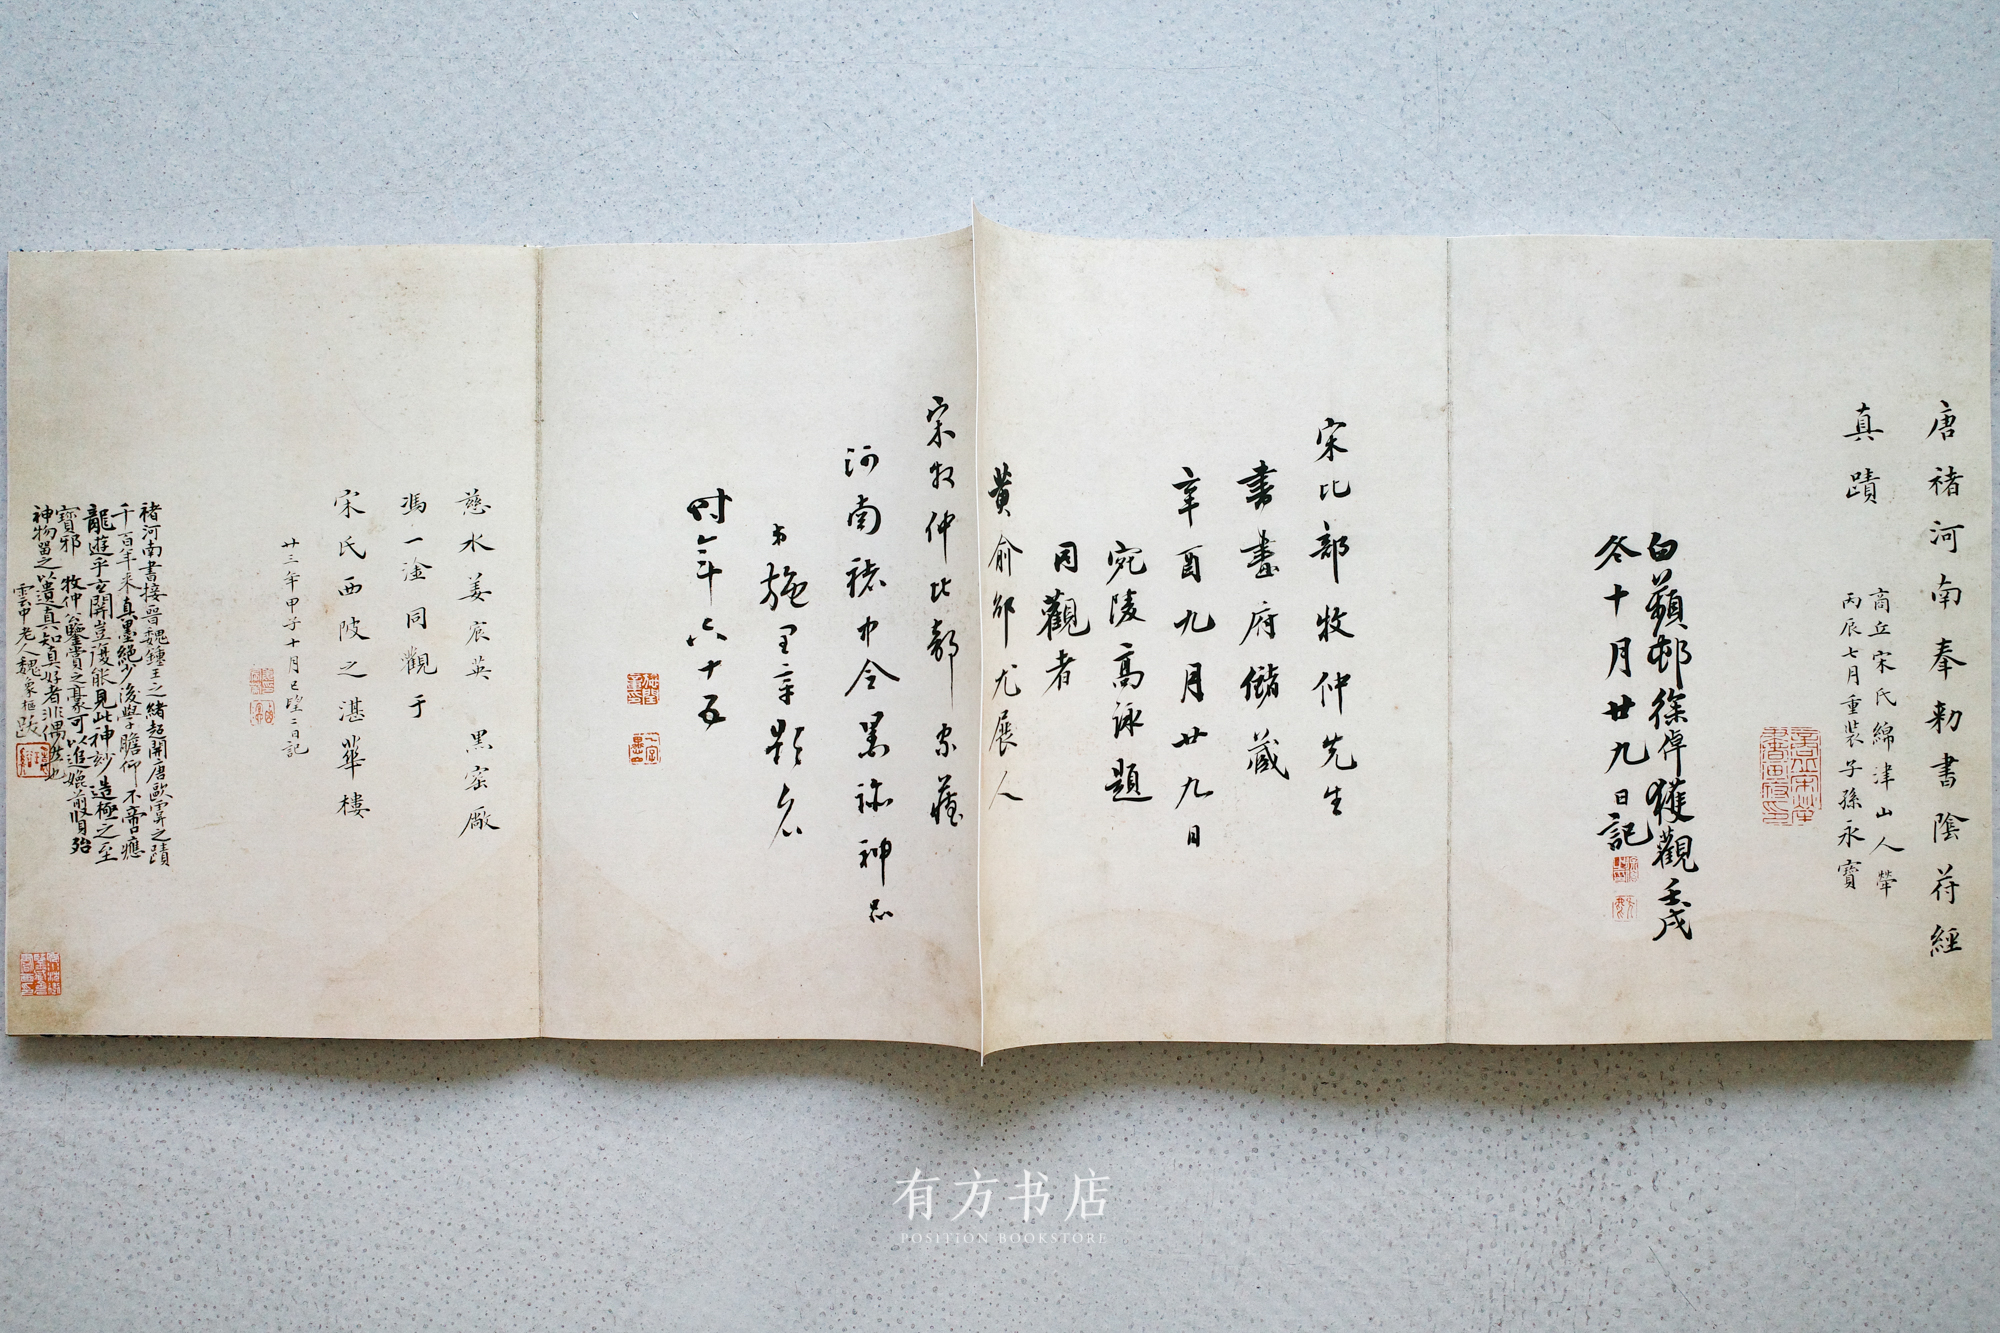 唐褚河南奉勅書陰符經
真蹟
商丘宋氏綿津山人犖
丙辰七月重裝子孫永寶
白蘋邨徐倬獲觀壬戌
冬十月廿九日記
宋比部牧仲先生
書畫府儲藏
辛酉九月廿九日
宛陵高詠題
同觀者
黃俞邰尤展人
宋牧仲比部家藏
河南褚中令墨跡神品
施閏章題名
時年六十五
慈水姜宸英 黑窑廠
馮一淦同觀于
宋氏西陂之湛華樓
廿三年甲子十月已望二日記
褚河南書接晉魏鍾王之緒起開唐歐虞之蹟
千百年来真墨絕少後學瞻仰不啻應
龍遊乎玄開豈復能見此神妙造極之至
寶邪 牧仲公鑒賞之豪可以追媲前賢殆
神物留之以遺真知真好者非偶然也
雲中老人魏象樞跋
有方书店
POSITION BOOKSTORE